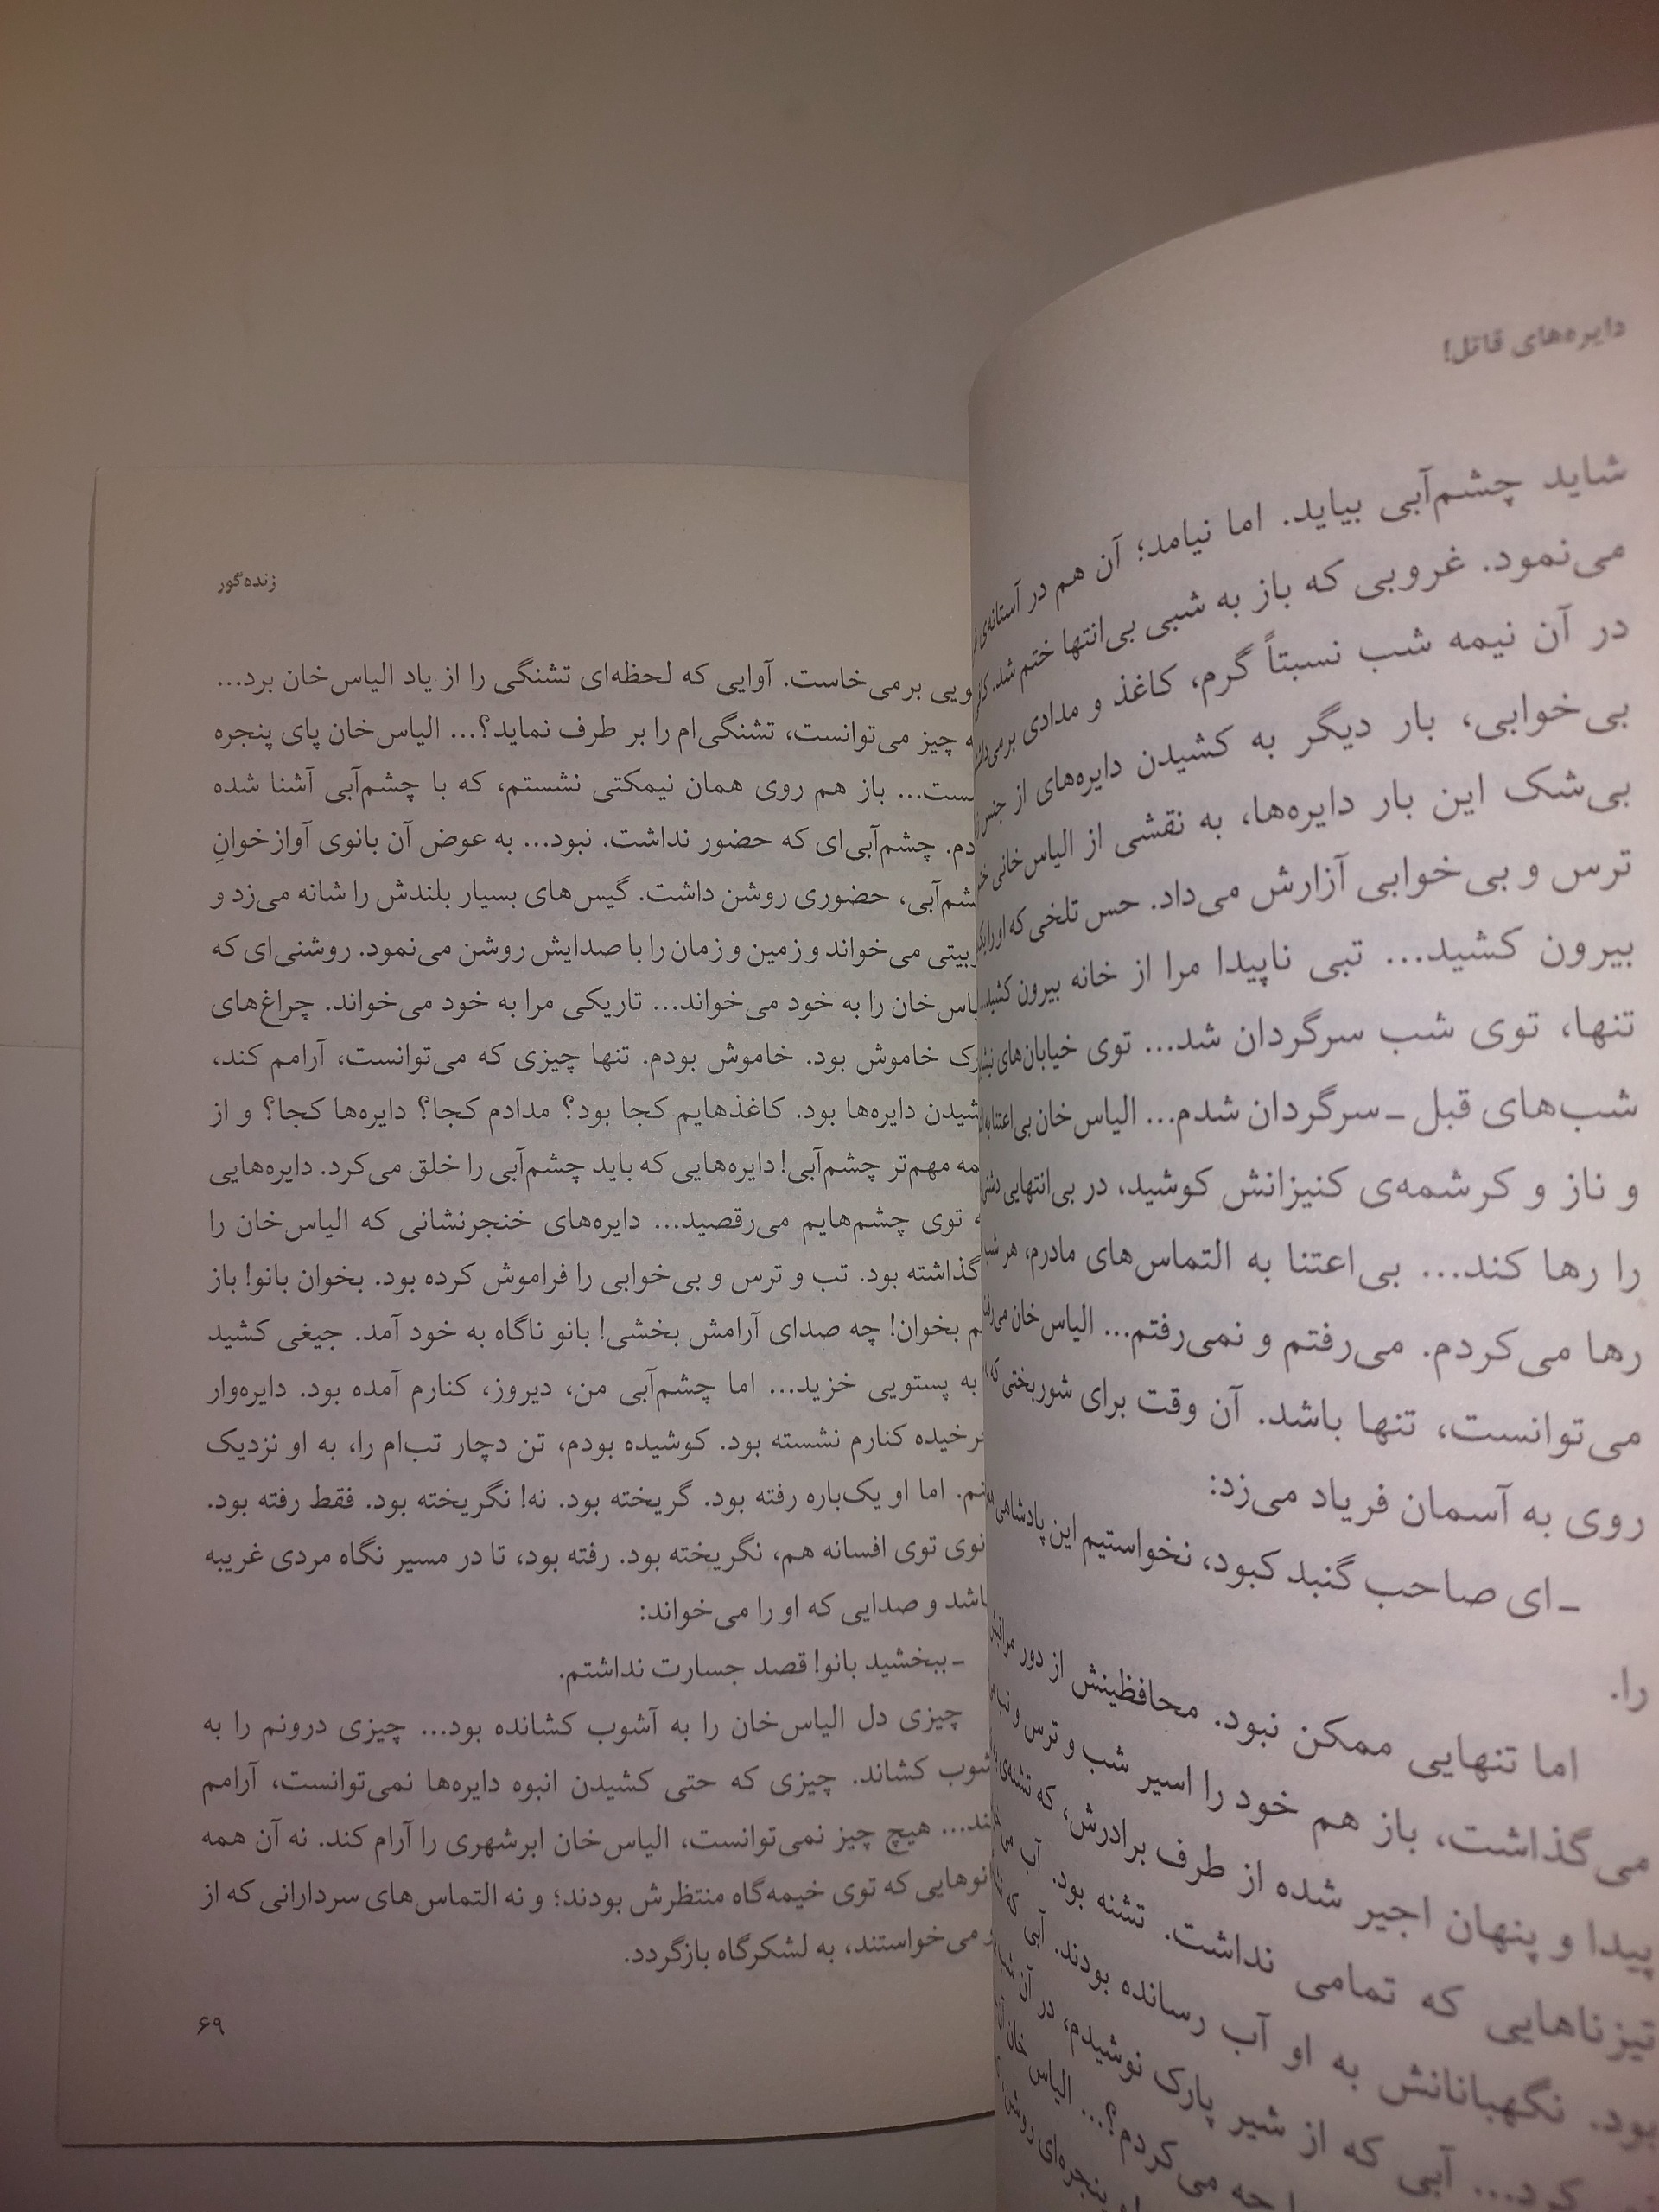 دایره‌های قاتل!
شاید چشم‌آبی بیاید. اما نیامد؛ آن هم در آستانه‌ی
می‌نمود. غروبی که باز به شبی بی‌انتها ختم شد.
در آن نیمه شب نسبتاً گرم، کاغذ و مدادی
بی‌خوابی، بار دیگر به کشیدن دایره‌های از جنس
بی‌شک این بار دایره‌ها، به نقشی از الیاس‌خانی
ترس و بی‌خوابی آزارش می‌داد. حس تلخی که او را
بیرون کشید... تبی ناپیدا مرا از خانه بیرون کشید...
تنها، توی شب سرگردان شد... توی خیابان‌های
شب‌های قبل ـ سرگردان شدم... الیاس‌خان بی‌اعتنا به
و ناز و کرشمه‌ی کنیزانش کوشید، در بی‌انتهایی
را رها کند... بی‌اعتنا به التماس‌های مادرم، هر
رها می‌کردم. می‌رفتم و نمی‌رفتم... الیاس‌خان
می‌توانست، تنها باشد. آن وقت برای شوربختی
روی به آسمان فریاد می‌زد:
ـ ای صاحب گنبد کبود، نخواستیم این پادشاهی
را.
اما تنهایی ممکن نبود. محافظینش از دور
می‌گذاشت، باز هم خود را اسیر شب و ترس و
پیدا و پنهان اجیر شده از طرف برادرش، که تشنه‌ی
تیزناهایی که تمامی نداشت. تشنه بود. آب
بود. نگهبانانش به او آب رسانده بودند. آبی
کرد... آبی که از شیر پارک نوشیدم، در آن
چه می‌کردم؟... الیاس خان
پنجره‌ای
زنده‌گور
برمی‌خاست. آوایی که لحظه‌ای تشنگی را از یاد الیاس‌خان برد...
چیز می‌توانست، تشنگی‌ام را بر طرف نماید؟... الیاس‌خان پای پنجره
باز هم روی همان نیمکتی نشستم، که با چشم‌آبی آشنا شده
چشم‌آبی‌ای که حضور نداشت. نبود... به عوض آن بانوی آوازخوانِ
حضوری روشن داشت. گیس‌های بسیار بلندش را شانه می‌زد و
می‌خواند و زمین و زمان را با صدایش روشن می‌نمود. روشنی‌ای که
خان را به خود می‌خواند... تاریکی مرا به خود می‌خواند. چراغ‌های
خاموش بود. خاموش بودم. تنها چیزی که می‌توانست، آرامم کند،
دایره‌ها بود. کاغذهایم کجا بود؟ مدادم کجا؟ دایره‌ها کجا؟ و از
مهم‌تر چشم‌آبی! دایره‌هایی که باید چشم‌آبی را خلق می‌کرد. دایره‌هایی
توی چشم‌هایم می‌رقصید... دایره‌های خنجرنشانی که الیاس‌خان را
گذاشته بود. تب و ترس و بی‌خوابی را فراموش کرده بود. بخوان بانو! باز
بخوان! چه صدای آرامش بخشی! بانو ناگاه به خود آمد. جیغی کشید
به پستویی خزید... اما چشم‌آبی من، دیروز، کنارم آمده بود. دایره‌وار
کنارم نشسته بود. کوشیده بودم، تن دچار تب‌ام را، به او نزدیک
اما او یک‌باره رفته بود. گریخته بود. نه! نگریخته بود. فقط رفته بود.
توی افسانه هم، نگریخته بود. رفته بود، تا در مسیر نگاه مردی غریبه
و صدایی که او را می‌خواند:
ـ ببخشید بانو! قصد جسارت نداشتم.
چیزی دل الیاس‌خان را به آشوب کشانده بود... چیزی درونم را به
کشاند. چیزی که حتی کشیدن انبوه دایره‌ها نمی‌توانست، آرامم
هیچ چیز نمی‌توانست، الیاس‌خان ابرشهری را آرام کند. نه آن همه
که توی خیمه‌گاه منتظرش بودند؛ و نه التماس‌های سردارانی که از
می‌خواستند، به لشکرگاه بازگردد.
۶۹